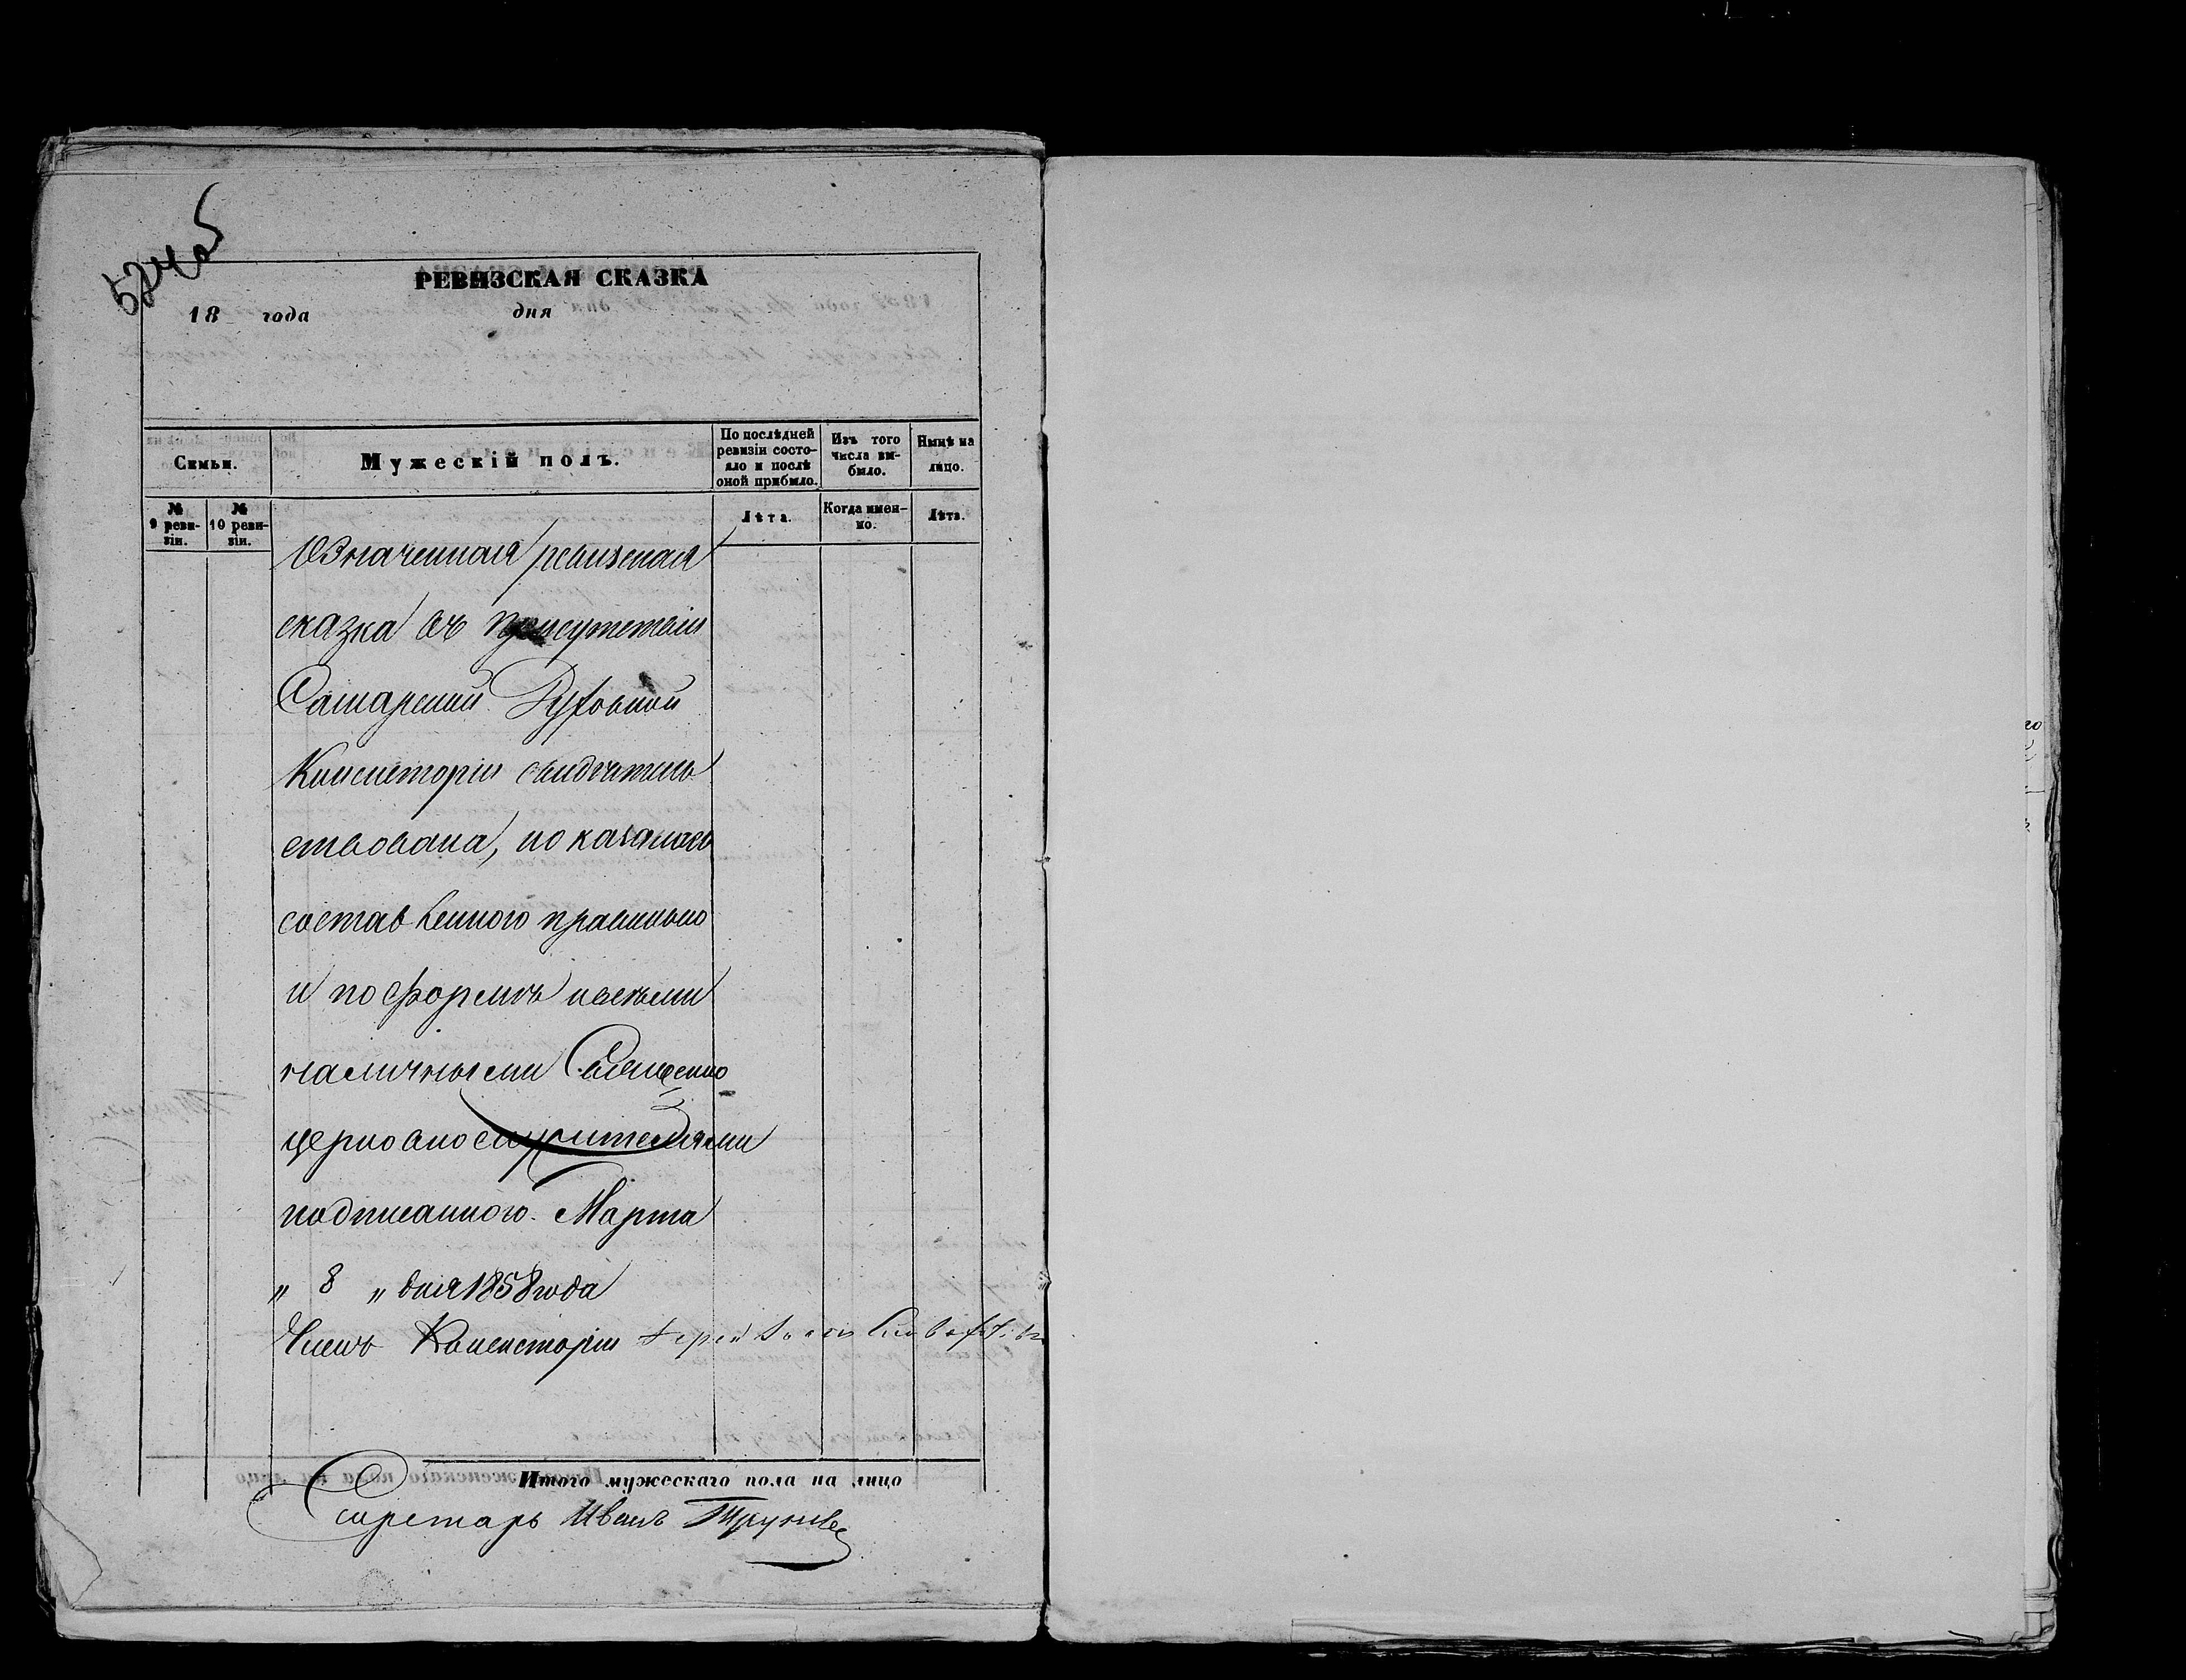 524об
РЕВИЗСКАЯ СКАЗКА
18 года дня
Семьи.
Мужескій полъ.
По послѣдней ревизіи состояло и послѣ оной прибыло.
Изъ того числа выбыло.
Нынѣ на лицо.
№ 9 ревизіи.
№ 10 ревизіи.
Лѣта.
Когда именно.
Лѣта.
Означенная ревизская
сказка въ присутствіи
Самарской Духовной
Консисторіи свидѣтель
ствована, показалась
составленною правильно
и по формѣ и всѣми
наличными Священно
церковнослужителями
подписанною. Марта
„ 8 „ дня 1858 года
Членъ Консисторіи Іерей
Итого мужескаго пола на лицо
Секретарь Иванъ